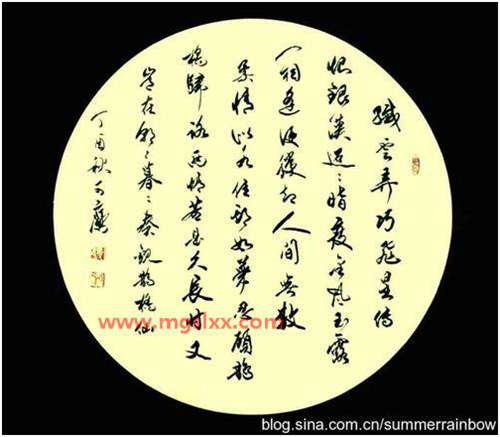 纖雲弄巧飛星傳
恨銀漢迢〻暗度金風玉露
一相逢便勝却人間無數
柔情似水佳期如夢忍顧鵲
橋歸路兩情若是久長時又
豈在朝〻暮〻秦觀鵲橋仙
丁酉秋
www.mgalxx.com
blog.sina.com.cn/summerrainbow